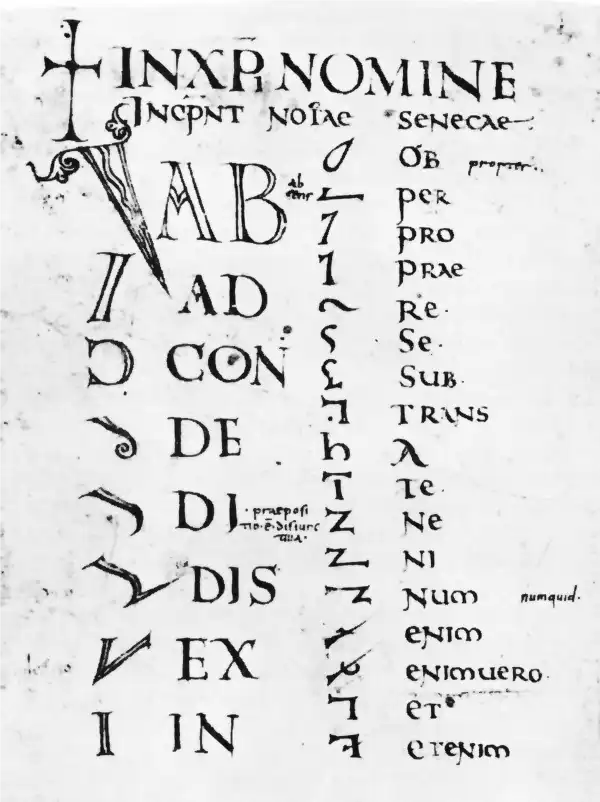 INXPI NOMINE
INCPNT NOTAE SENECAE
AB
AD
CON
DE
DI · praeposi
tio·ē·disiunc
tiua·
DIS
EX
IN
OB propter
PER
PRO
PRAE
RE·
SE·
SUB·
TRANS
A
TE·
NE
NI
NUM numquid·
ENIM
ENIMUERO·
ET
ETENIM